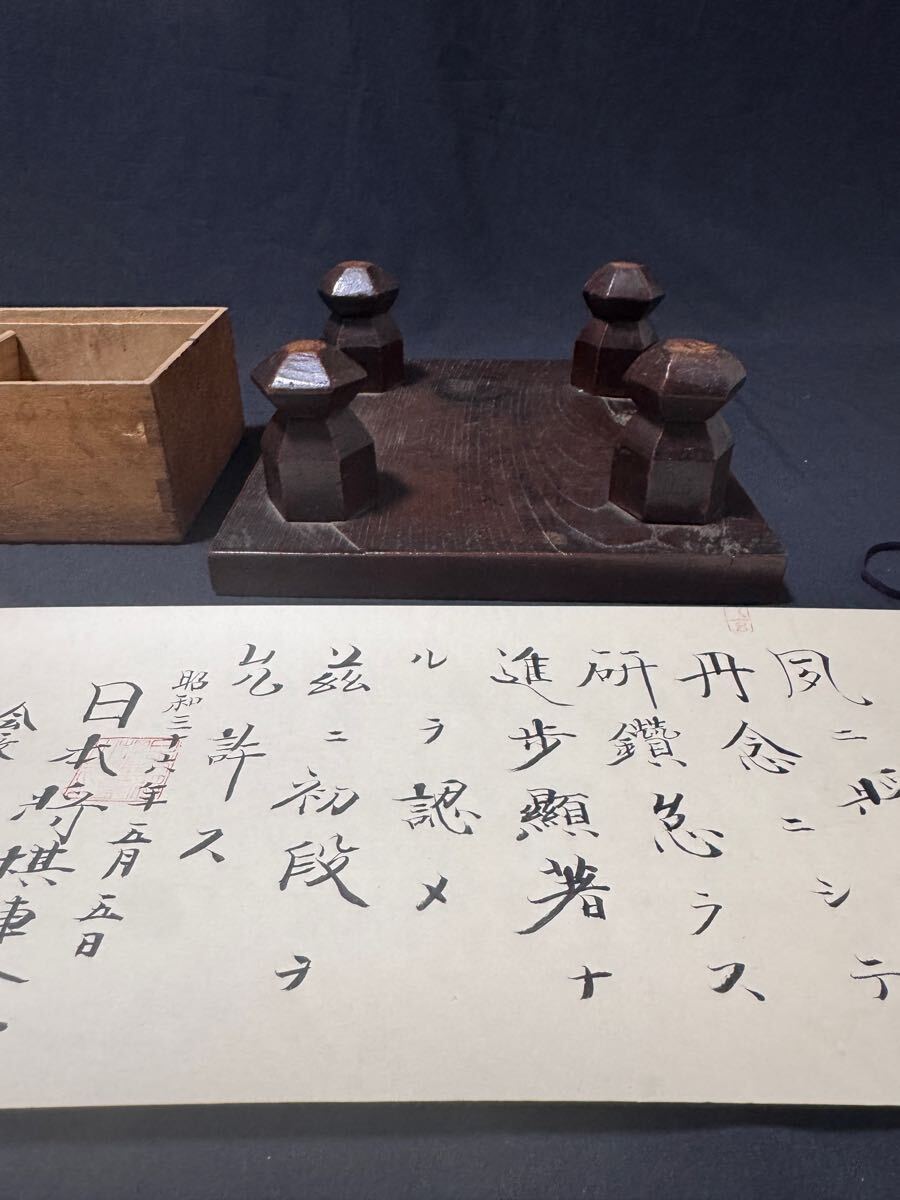 夙ニ将
丹念ニシテ
研鑽怠ラス
進歩顯著ナ
ルヲ認メ
茲ニ初段ヲ
允許ス
昭和三十六年五月五日
日本将棋連
会長